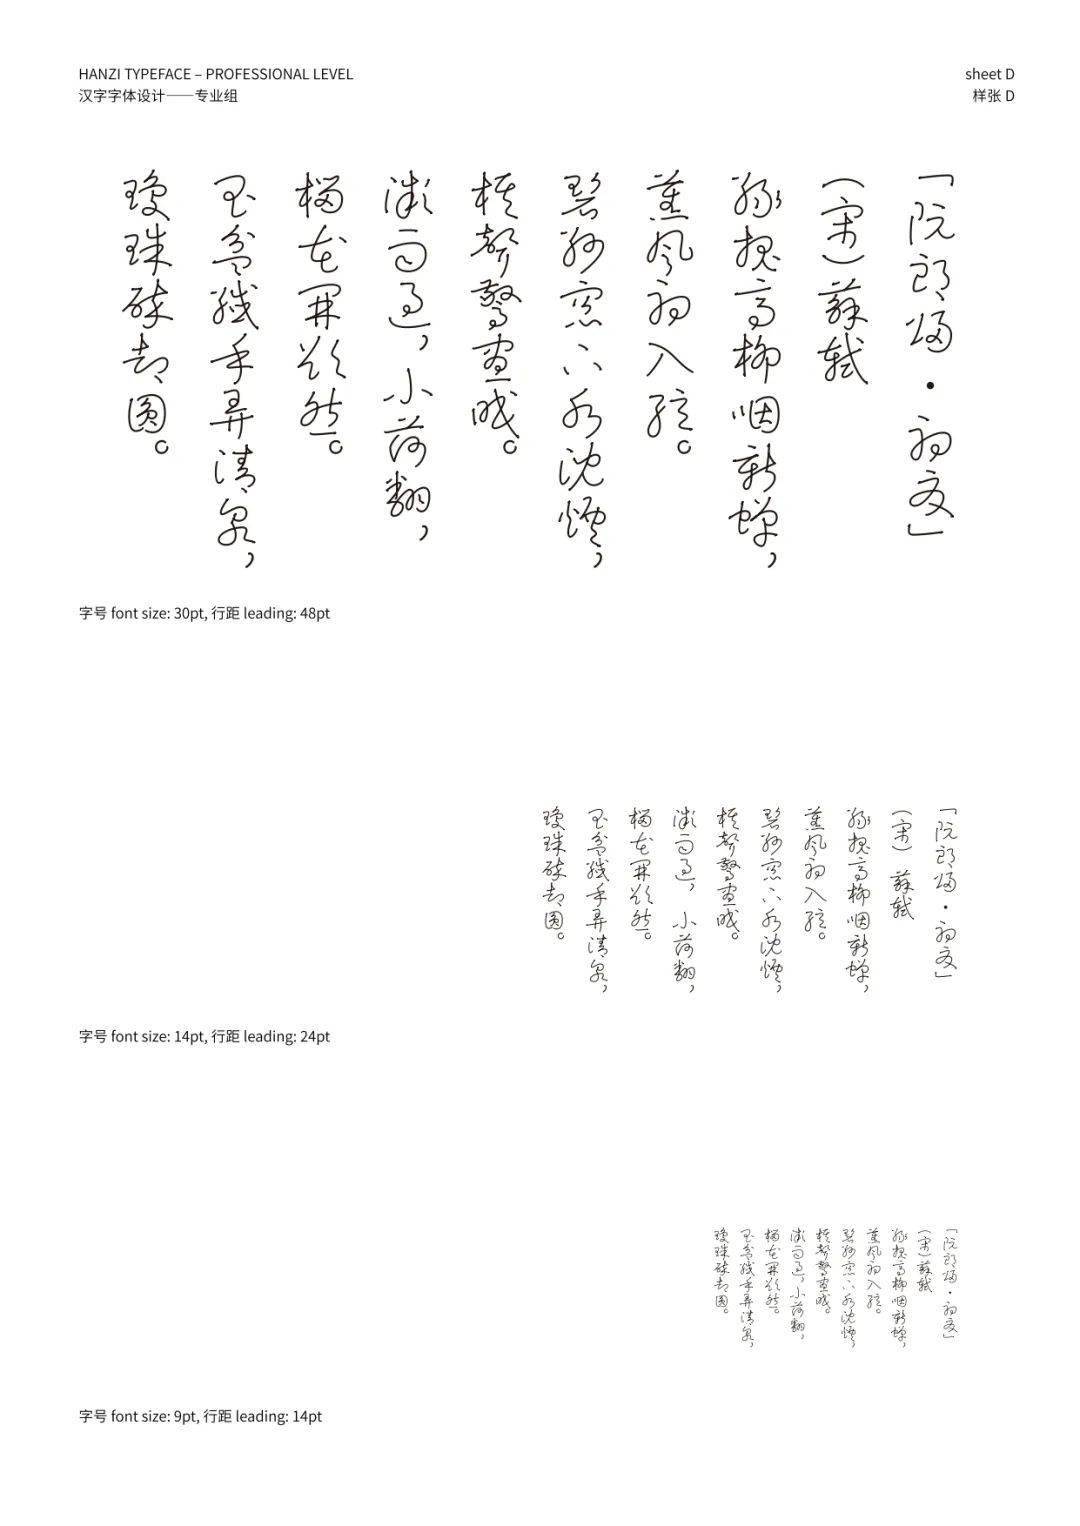 HANZI TYPEFACE – PROFESSIONAL LEVEL
汉字字体设计——专业组
sheet D
样张 D
「阮郎歸・初夏」
(宋)蘇軾
綠槐高柳咽新蟬，
薰風初入弦。
碧紗窗下水沈煙，
棋聲驚晝眠。
微雨過，小荷翻，
榴花開欲然。
玉盆纖手弄清泉，
瓊珠碎却圓。
字号 font size: 30pt, 行距 leading: 48pt
「阮郎歸・初夏」
(宋)蘇軾
綠槐高柳咽新蟬，
薰風初入弦。
碧紗窗下水沈煙，
棋聲驚晝眠。
微雨過，小荷翻，
榴花開欲然。
玉盆纖手弄清泉，
瓊珠碎却圓。
字号 font size: 14pt, 行距 leading: 24pt
「阮郎歸・初夏」
(宋)蘇軾
綠槐高柳咽新蟬，
薰風初入弦。
碧紗窗下水沈煙，
棋聲驚晝眠。
微雨過，小荷翻，
榴花開欲然。
玉盆纖手弄清泉，
瓊珠碎却圓。
字号 font size: 9pt, 行距 leading: 14pt